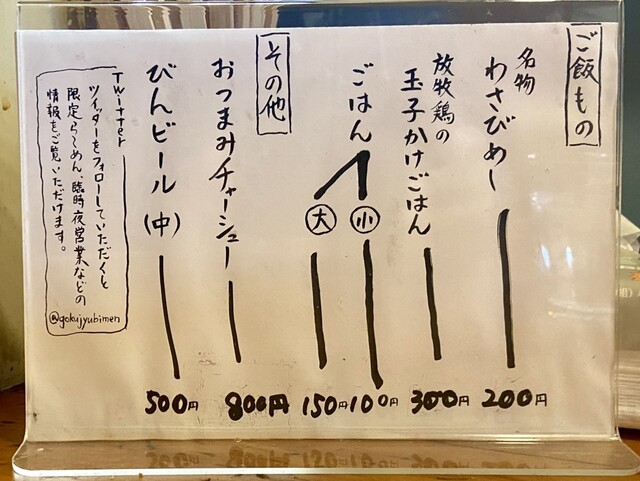 ご飯もの
名物
わさびめし 200円
放牧鶏の
玉子かけごはん 300円
ごはん
小 100円
大 150円
その他
おつまみチャーシュー 800円
びんビール(中) 500円
Twitter
ツイッターをフォローしていただくと
限定らーめん、臨時夜営業などの
情報をご覧いただけます。
@gokujyubimen